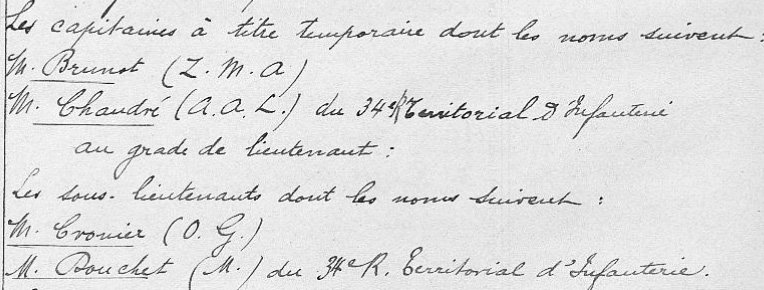 Les capitaines à titre temporaire dont les noms suivent :
M. Brunot (Z. M. A)
M. Chaudré (A. A. L.) du 34e R Territorial d'Infanterie
au grade de lieutenant :
Les sous-lieutenants dont les noms suivent :
M. Cronier (O. G.)
M. Bouchet (M.) du 34e R. Territorial d'Infanterie.